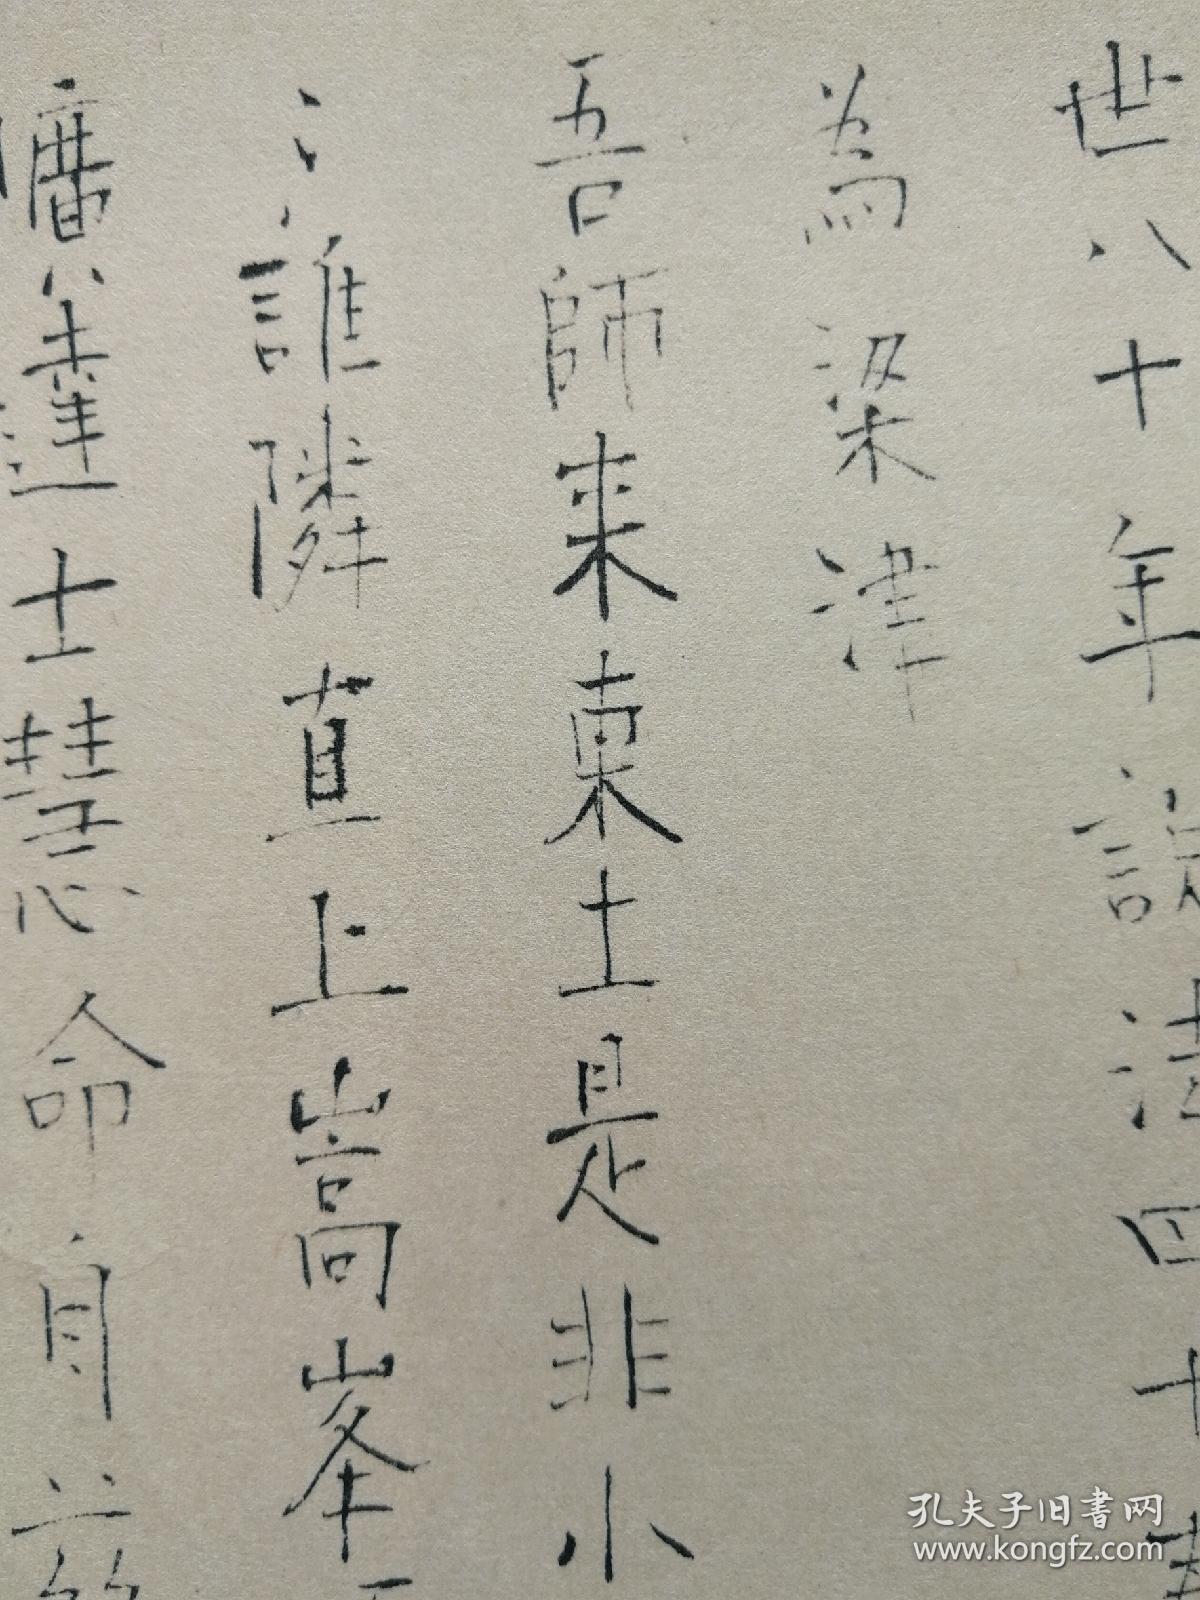 世八十年說法四十
為梁津
吾師来東土是非小
誰隣直上嵩峯
曠達士慧命自茲
孔夫子旧书网
www.kongfz.com